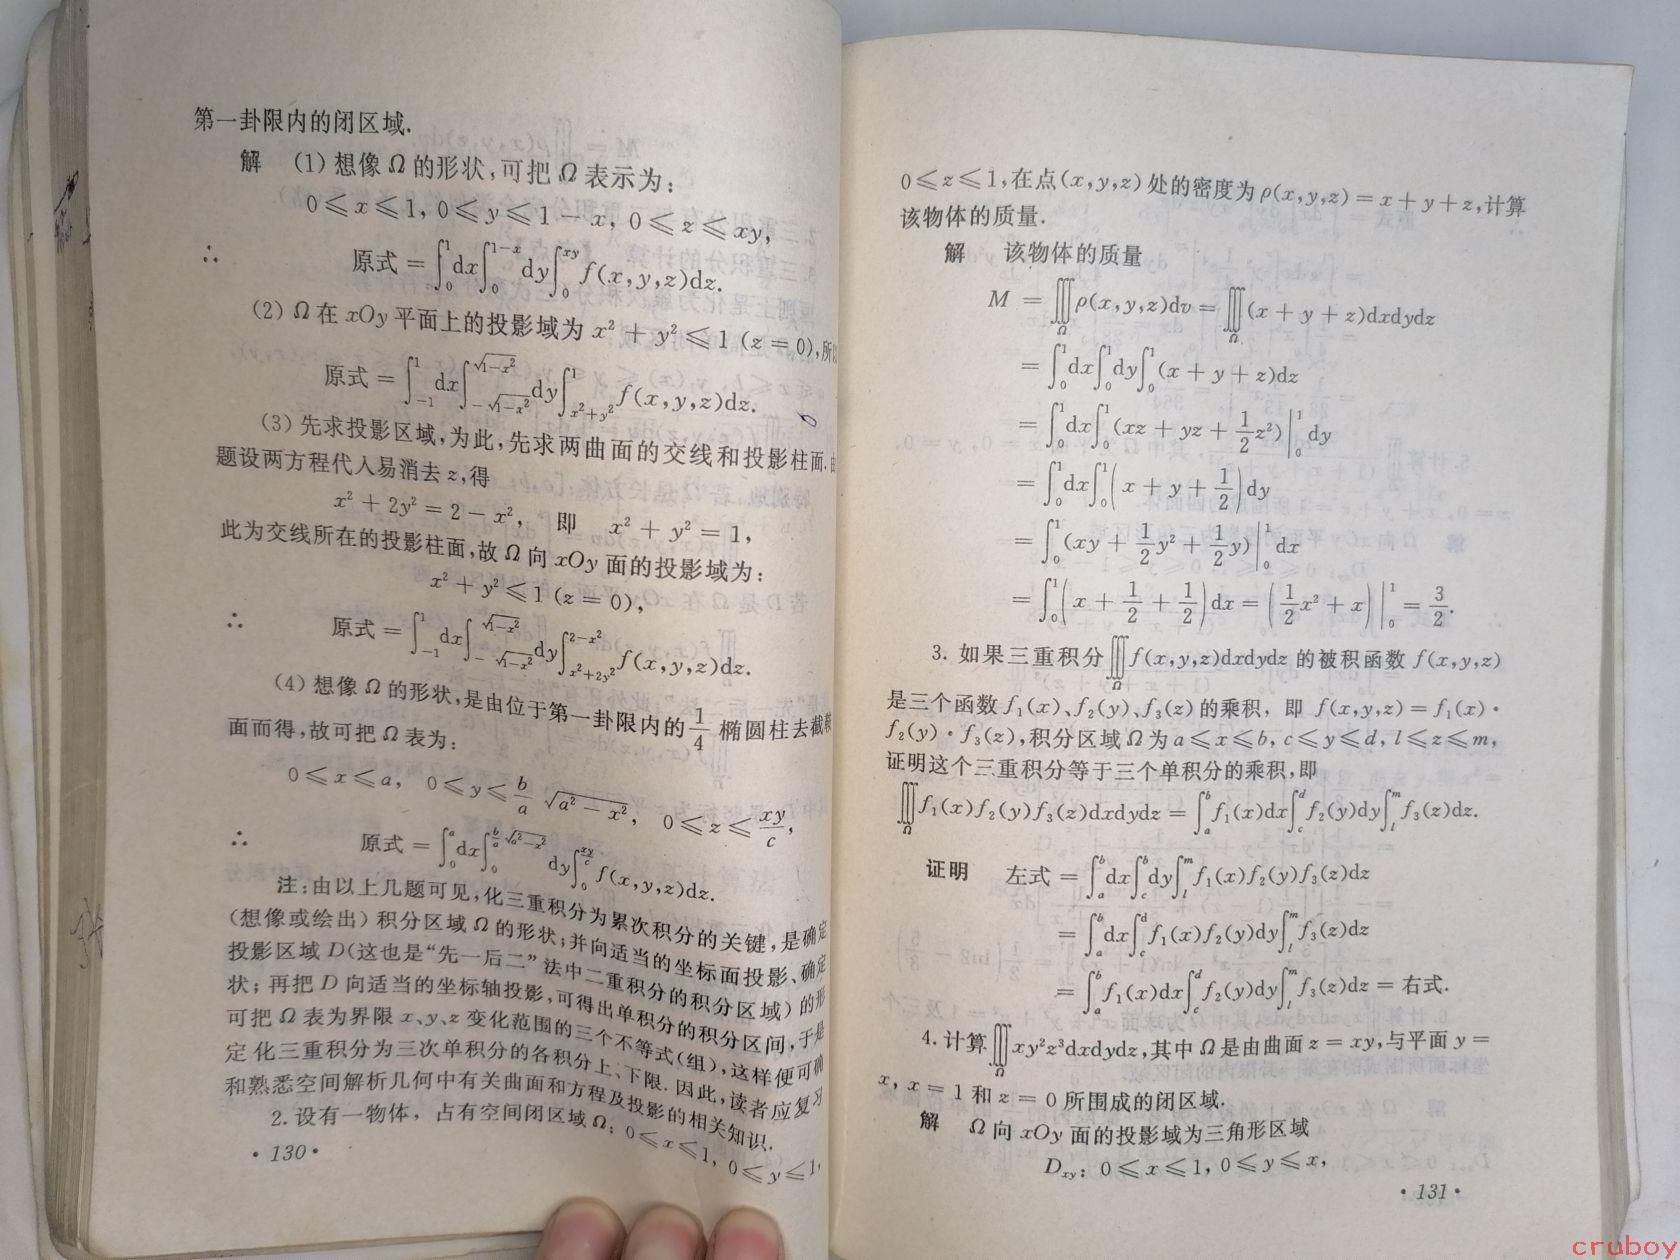 第一卦限内的闭区域.
解 (1) 想像 Ω 的形状,可把 Ω 表示为:
0 ≤ x ≤ 1, 0 ≤ y ≤ 1 − x, 0 ≤ z ≤ xy,
∴ 原式 = ∫₀¹dx∫₀^{1−x}dy∫₀^{xy} f(x,y,z)dz.
(2) Ω 在 xOy 平面上的投影域为 x² + y² ≤ 1 (z = 0),所以
原式 = ∫₋₁¹dx∫_{−√(1−x²)}^{√(1−x²)}dy∫_{x²+y²}^{1} f(x,y,z)dz.
(3) 先求投影区域,为此,先求两曲面的交线和投影柱面.由
题设两方程代人易消去 z,得
x² + 2y² = 2 − x², 即 x² + y² = 1,
此为交线所在的投影柱面,故 Ω 向 xOy 面的投影域为:
x² + y² ≤ 1 (z = 0),
∴ 原式 = ∫₋₁¹dx∫_{−√(1−x²)}^{√(1−x²)}dy∫_{x²+2y²}^{2−x²} f(x,y,z)dz.
(4) 想像 Ω 的形状,是由位于第一卦限内的 1/4 椭圆柱去截
面而得,故可把 Ω 表为:
0 ≤ x ≤ a, 0 ≤ y ≤ b/a √(a² − x²), 0 ≤ z ≤ xy/c,
∴ 原式 = ∫₀^a dx∫₀^{b/a √(a²−x²)} dy∫₀^{xy/c} f(x,y,z)dz.
注:由以上几题可见,化三重积分为累次积分的关键,是确定
(想像或绘出) 积分区域 Ω 的形状;并向适当的坐标面投影、确定
投影区域 D(这也是“先一后二”法中二重积分的积分区域) 的形
状; 再把 D 向适当的坐标轴投影,可得出单积分的积分区间,于是
可把 Ω 表为界限 x、y、z 变化范围的三个不等式(组),这样便可确
定化三重积分为三次单积分的各积分上、下限. 因此,读者应复习
和熟悉空间解析几何中有关曲面和方程及投影的相关知识.
2. 设有一物体, 占有空间闭区域 Ω: 0 ≤ x ≤ 1, 0 ≤ y ≤ 1,
· 130 ·
0 ≤ z ≤ 1,在点(x,y,z) 处的密度为 ρ(x,y,z) = x + y + z,计算
该物体的质量.
解 该物体的质量
M = ∭_Ω ρ(x,y,z)dv = ∭_Ω (x + y + z)dxdydz
= ∫₀¹dx∫₀¹dy∫₀¹(x + y + z)dz
= ∫₀¹dx∫₀¹(xz + yz + 1/2 z²)|₀¹ dy
= ∫₀¹dx∫₀¹(x + y + 1/2)dy
= ∫₀¹(xy + 1/2 y² + 1/2 y)|₀¹ dx
= ∫₀¹(x + 1/2 + 1/2)dx = (1/2 x² + x)|₀¹ = 3/2.
3. 如果三重积分 ∭_Ω f(x,y,z)dxdydz 的被积函数 f(x,y,z)
是三个函数 f₁(x)、f₂(y)、f₃(z) 的乘积, 即 f(x,y,z) = f₁(x) ·
f₂(y) · f₃(z),积分区域 Ω 为 a ≤ x ≤ b, c ≤ y ≤ d, l ≤ z ≤ m,
证明这个三重积分等于三个单积分的乘积,即
∭_Ω f₁(x)f₂(y)f₃(z)dxdydz = ∫_a^b f₁(x)dx∫_c^d f₂(y)dy∫_l^m f₃(z)dz.
证明 左式 = ∫_a^b dx∫_c^b dy∫_l^m f₁(x)f₂(y)f₃(z)dz
= ∫_a^b dx∫_c^d f₁(x)f₂(y)dy∫_l^m f₃(z)dz
= ∫_a^b f₁(x)dx∫_c^d f₂(y)dy∫_l^m f₃(z)dz = 右式.
4. 计算 ∭_Ω xy²z³dxdydz,其中 Ω 是由曲面 z = xy,与平面 y =
x, x = 1 和 z = 0 所围成的闭区域.
解 Ω 向 xOy 面的投影域为三角形区域
D_{xy}: 0 ≤ x ≤ 1, 0 ≤ y ≤ x,
· 131 ·
cruboy